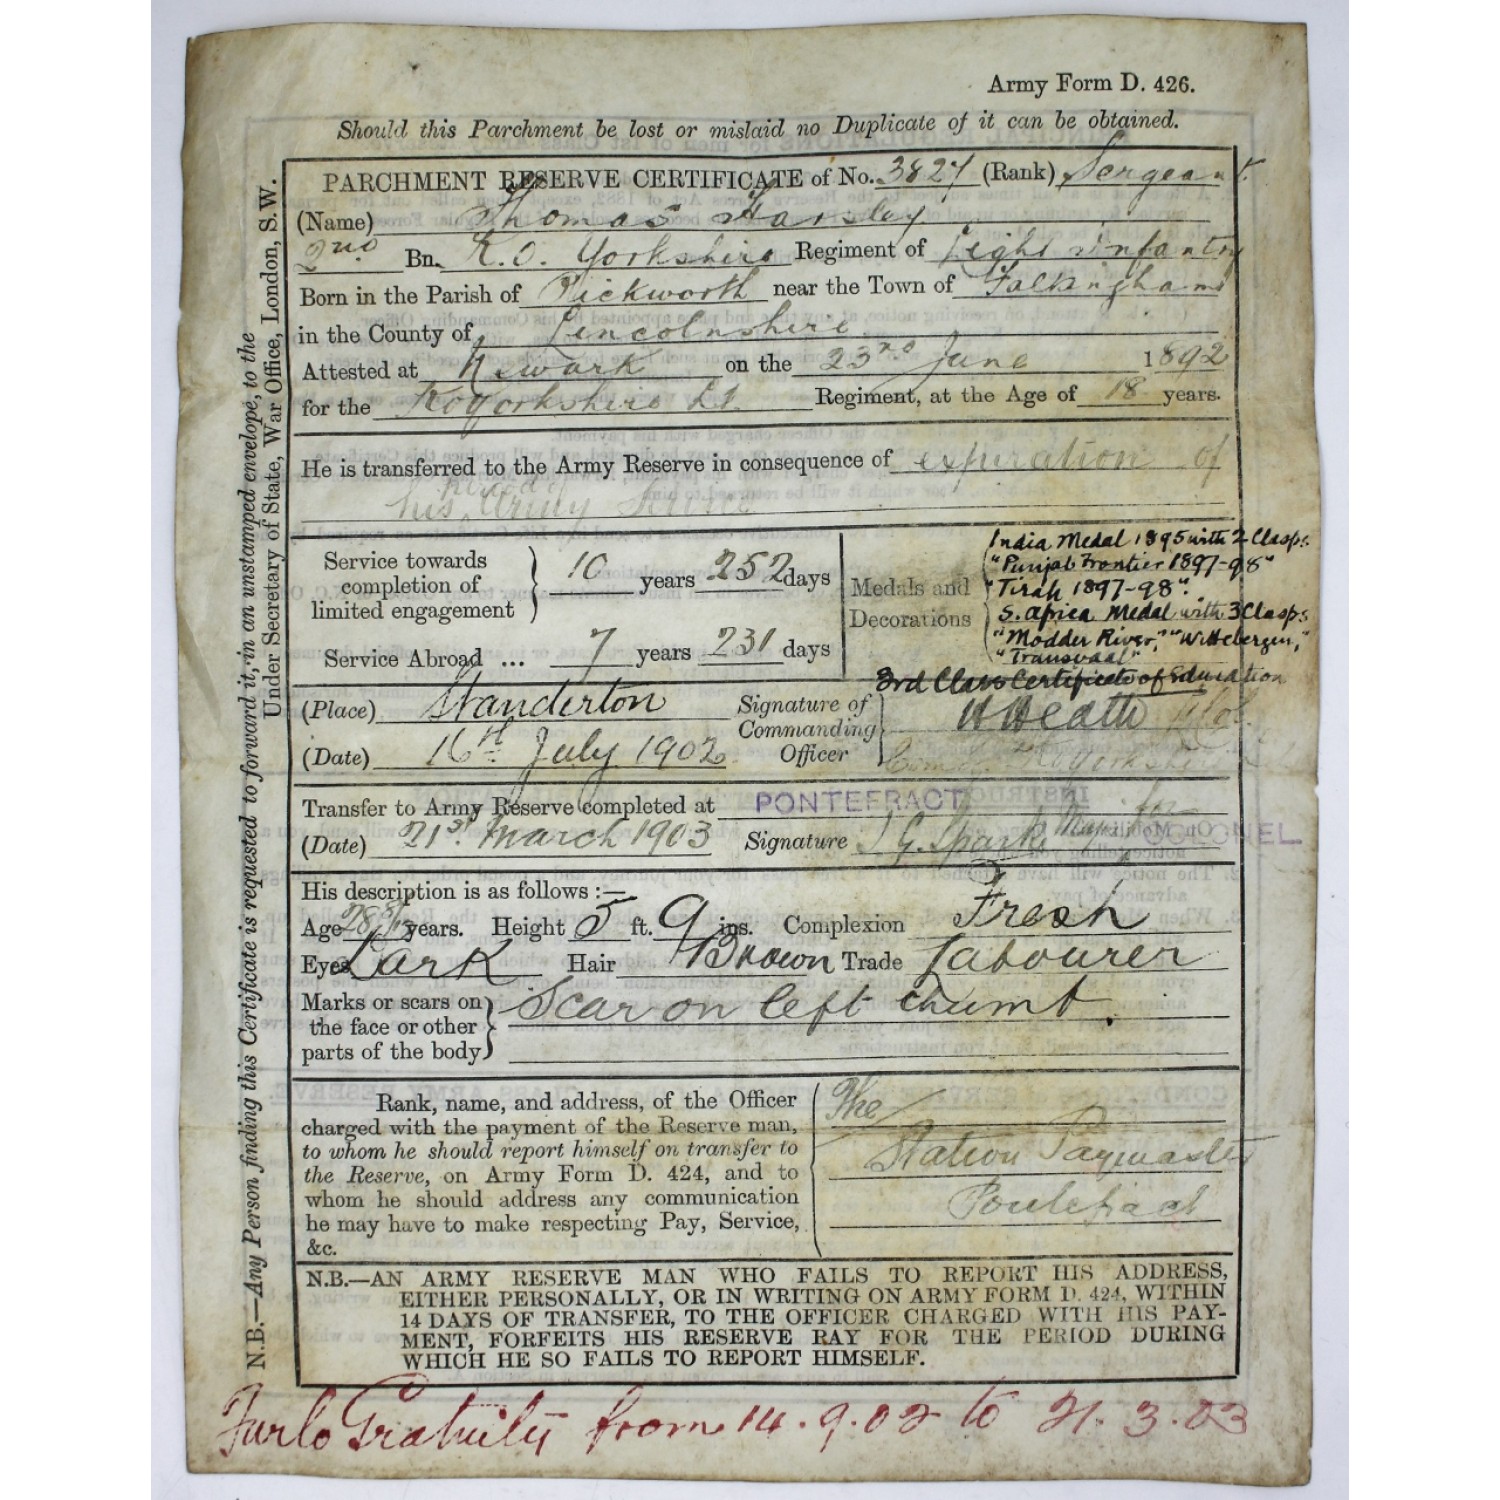 Army Form D. 426.
Should this Parchment be lost or mislaid no Duplicate of it can be obtained.
PARCHMENT RESERVE CERTIFICATE of No. 3827 (Rank) Sergeant
(Name) Thomas Harsley
2nd Bn. K.O. Yorkshire Regiment of Light Infantry
Born in the Parish of Pickworth near the Town of Falkingham
in the County of Lincolnshire
Attested at Newark on the 23rd June 1892
for the KOYorkshire L.I. Regiment, at the Age of 18 years.
He is transferred to the Army Reserve in consequence of expiration of
his period of Army Service
Service towards completion of limited engagement } 10 years 252 days
Service Abroad ... 7 years 231 days
Medals and Decorations
India Medal 1895 with 2 Clasps
"Punjab Frontier 1897-98"
"Tirah 1897-98".
S. Africa Medal with 3 Clasps
"Modder River," "Wittebergen,"
"Transvaal"
3rd Class Certificate of Education
(Place) Standerton Signature of Commanding Officer } H Heath
(Date) 16th July 1902
Transfer to Army Reserve completed at PONTEFRACT
(Date) 21st March 1903 Signature J G. Sparks Major for
COLONEL
His description is as follows :—
Age 28 8/12 years. Height 5 ft. 9 ins. Complexion Fresh
Eyes Dark Hair Brown Trade Labourer
Marks or scars on the face or other parts of the body } Scar on left thumb.
Rank, name, and address, of the Officer
charged with the payment of the Reserve man,
to whom he should report himself on transfer to
the Reserve, on Army Form D. 424, and to
whom he should address any communication
he may have to make respecting Pay, Service,
&c.
The
Station Paymaster
Pontefract
N.B.—AN ARMY RESERVE MAN WHO FAILS TO REPORT HIS ADDRESS,
EITHER PERSONALLY, OR IN WRITING ON ARMY FORM D. 424, WITHIN
14 DAYS OF TRANSFER, TO THE OFFICER CHARGED WITH HIS PAY-
MENT, FORFEITS HIS RESERVE PAY FOR THE PERIOD DURING
WHICH HE SO FAILS TO REPORT HIMSELF.
Furlo Gratuity from 14.9.02 to 21.3.03
N.B.—Any Person finding this Certificate is requested to forward it, in an unstamped envelope, to the
Under Secretary of State, War Office, London, S.W.